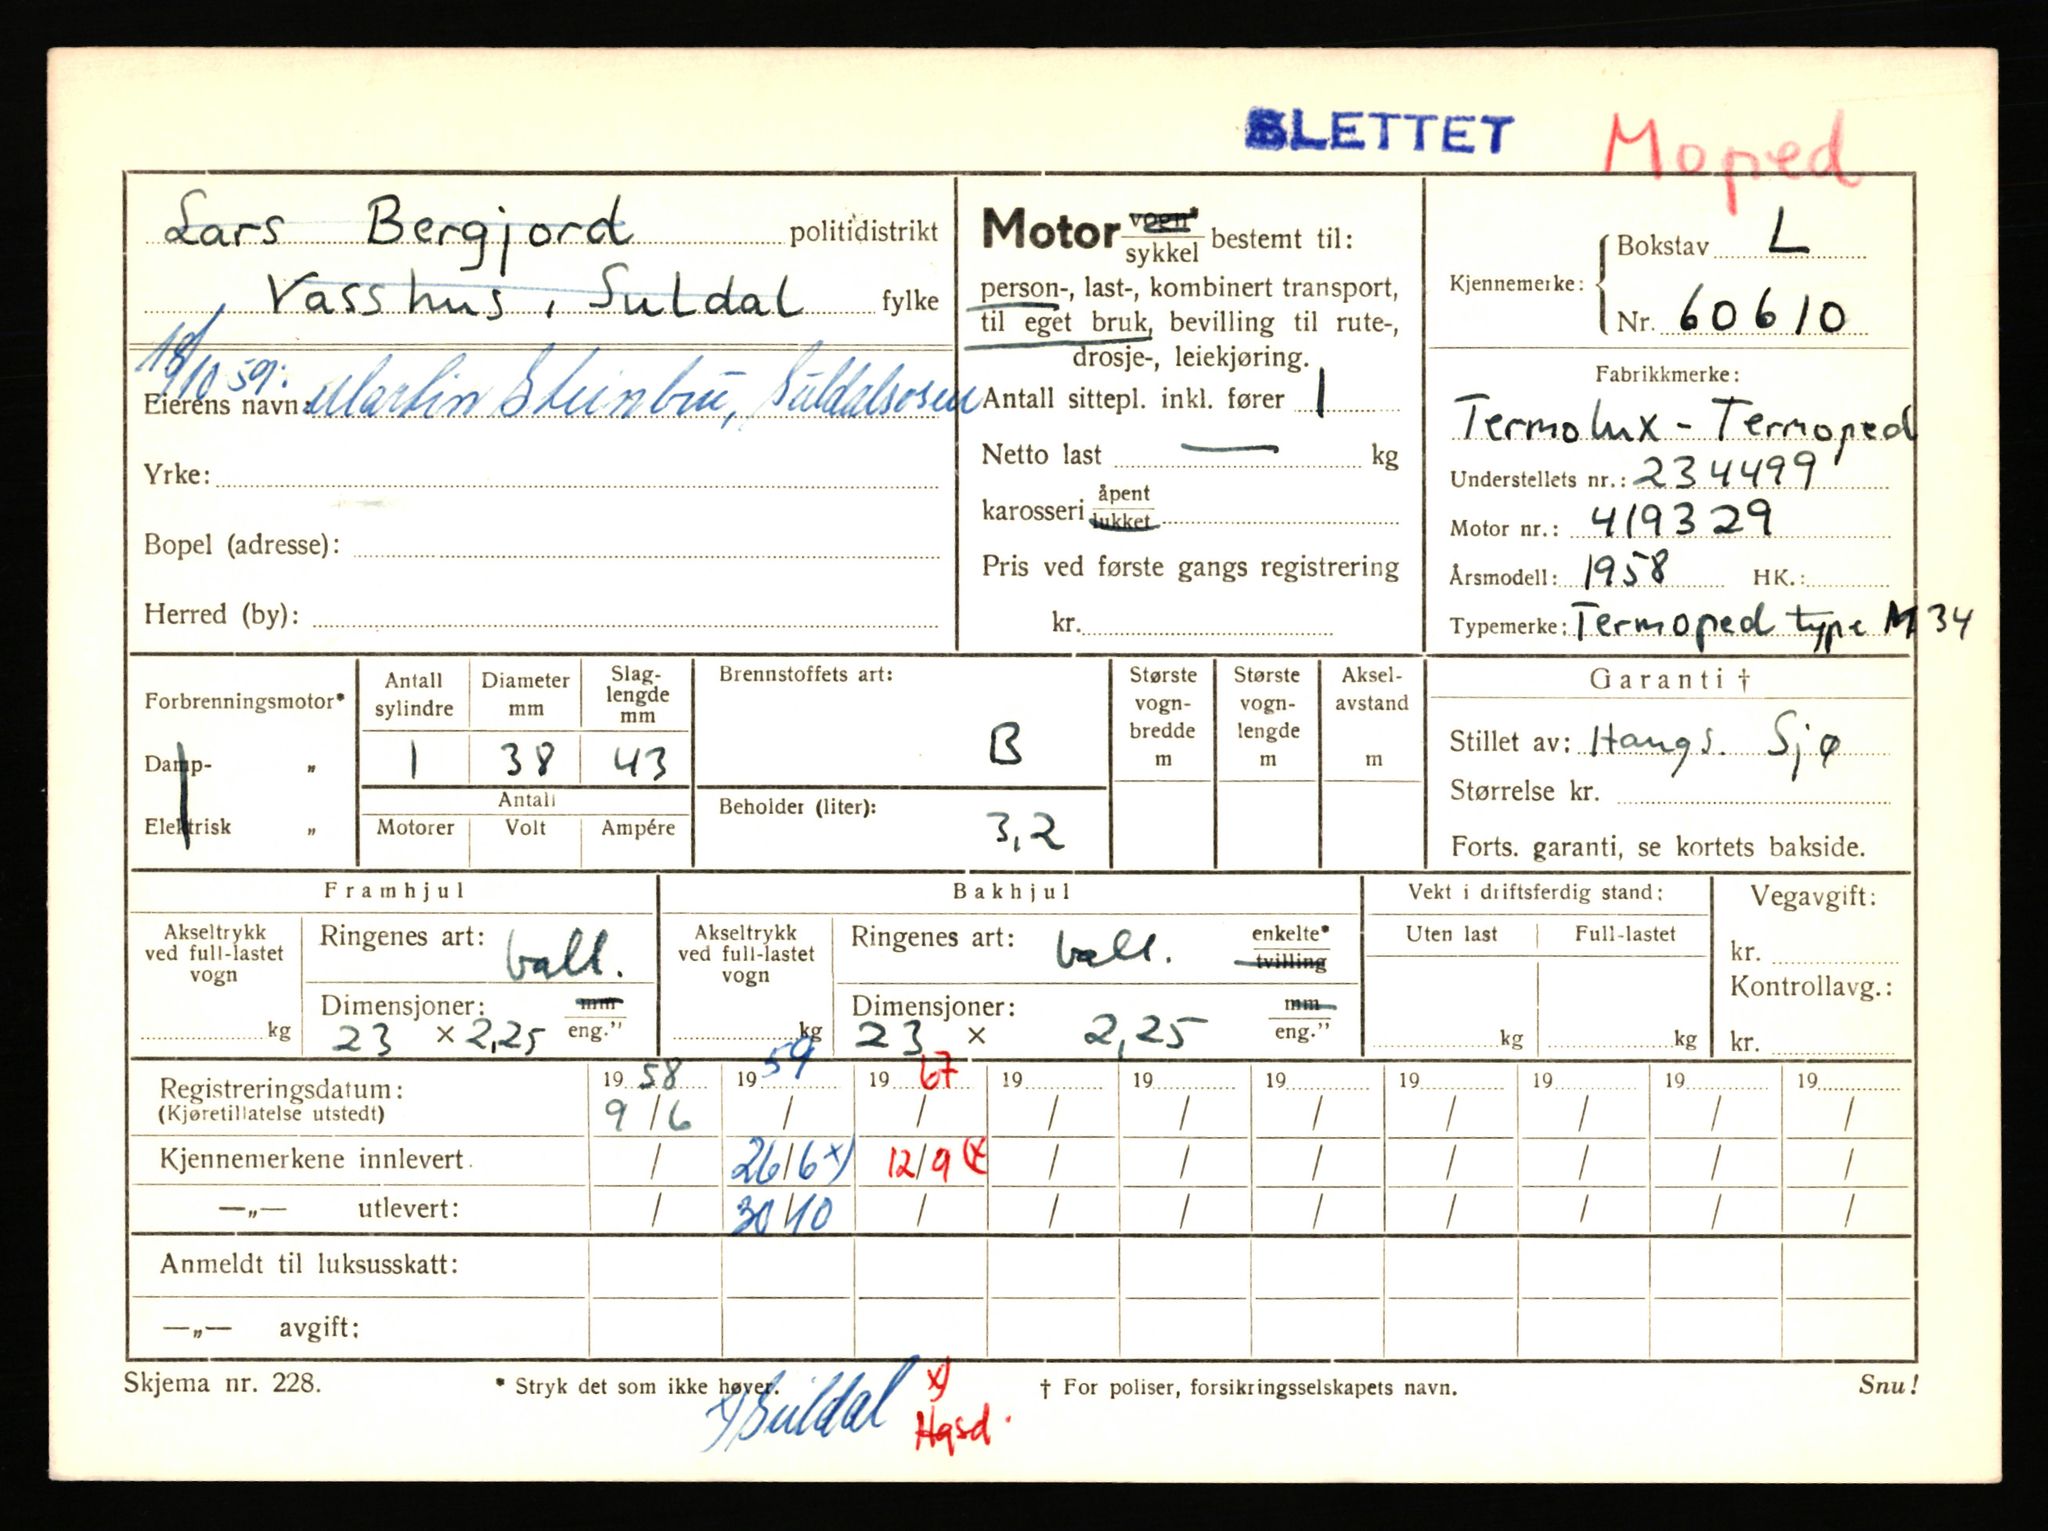 SLETTET Moped
Lars Bergjord politidistrikt
Vasshus, Suldal fylke
18/10 59:
Eierens navn: Martin Steinbru, Suldalsosen
Yrke:
Bopel (adresse):
Herred (by):
Motor vogn*/sykkel bestemt til:
person-, last-, kombinert transport,
til eget bruk, bevilling til rute-,
drosje-, leiekjøring.
Antall sittepl. inkl. fører 1
Netto last — kg
karosseri åpent/lukket
Pris ved første gangs registrering
kr.
Kjennemerke: Bokstav L
Nr. 60610
Fabrikkmerke:
Termolux - Termoped
Understellets nr.: 234499
Motor nr.: 419329
Årsmodell: 1958 HK.:
Typemerke: Termoped type M 34
Forbrenningsmotor*
Damp- „
Elektrisk „
Antall sylindre Diameter mm Slag-lengde mm
1 38 43
Antall
Motorer Volt Ampére
Brennstoffets art:
B
Beholder (liter):
3,2
Største vogn-bredde m
Største vogn-lengde m
Aksel-avstand m
Garanti †
Stillet av: Haugs. Sjø
Størrelse kr.
Forts. garanti, se kortets bakside.
Framhjul
Akseltrykk
ved full-lastet
vogn
kg
Ringenes art: ball.
Dimensjoner: mm
23 x 2,25 eng.”
Bakhjul
Akseltrykk
ved full-lastet
vogn
kg
Ringenes art: ball. enkelte*
tvilling
Dimensjoner: mm
23 x 2,25 eng.”
Vekt i driftsferdig stand:
Uten last Full-lastet
kg kg
Vegavgift:
kr.
Kontrollavg.:
kr.
Registreringsdatum: 19 58 19 59 19 67 19 19 19 19 19 19 19
(Kjøretillatelse utstedt) 9/6 / / / / / / / / /
Kjennemerkene innlevert / 26/6 x) 12/9 (x / / / / / / /
—„— utlevert: / 30/10 / / / / / / / /
Anmeldt til luksusskatt:
—„— avgift:
Skjema nr. 228. * Stryk det som ikke høver. † For poliser, forsikringsselskapets navn. Snu!
x) Suldal x)
Hgsd.